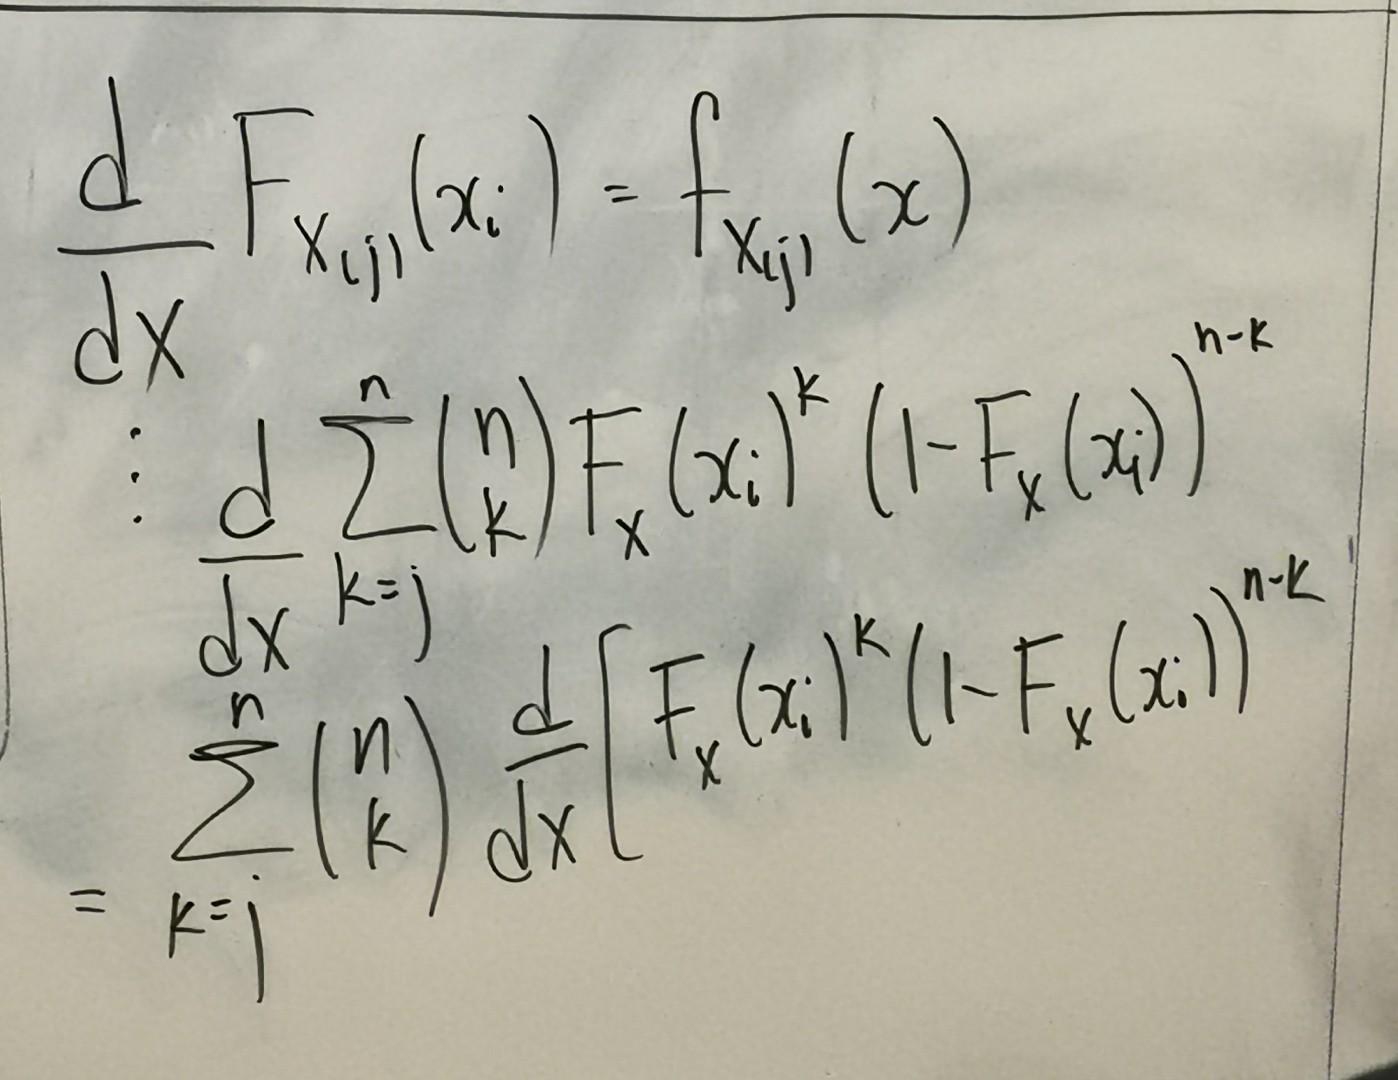 d/dx F_{X_{(j)}}(x_i) = f_{X_{(j)}}(x)
⋮ d/dx ∑_{k=j}^{n} (n k) F_X(x_i)^k (1-F_X(x_i))^{n-k}
= ∑_{k=j}^{n} (n k) d/dx [F_X(x_i)^k (1-F_X(x_i))^{n-k}